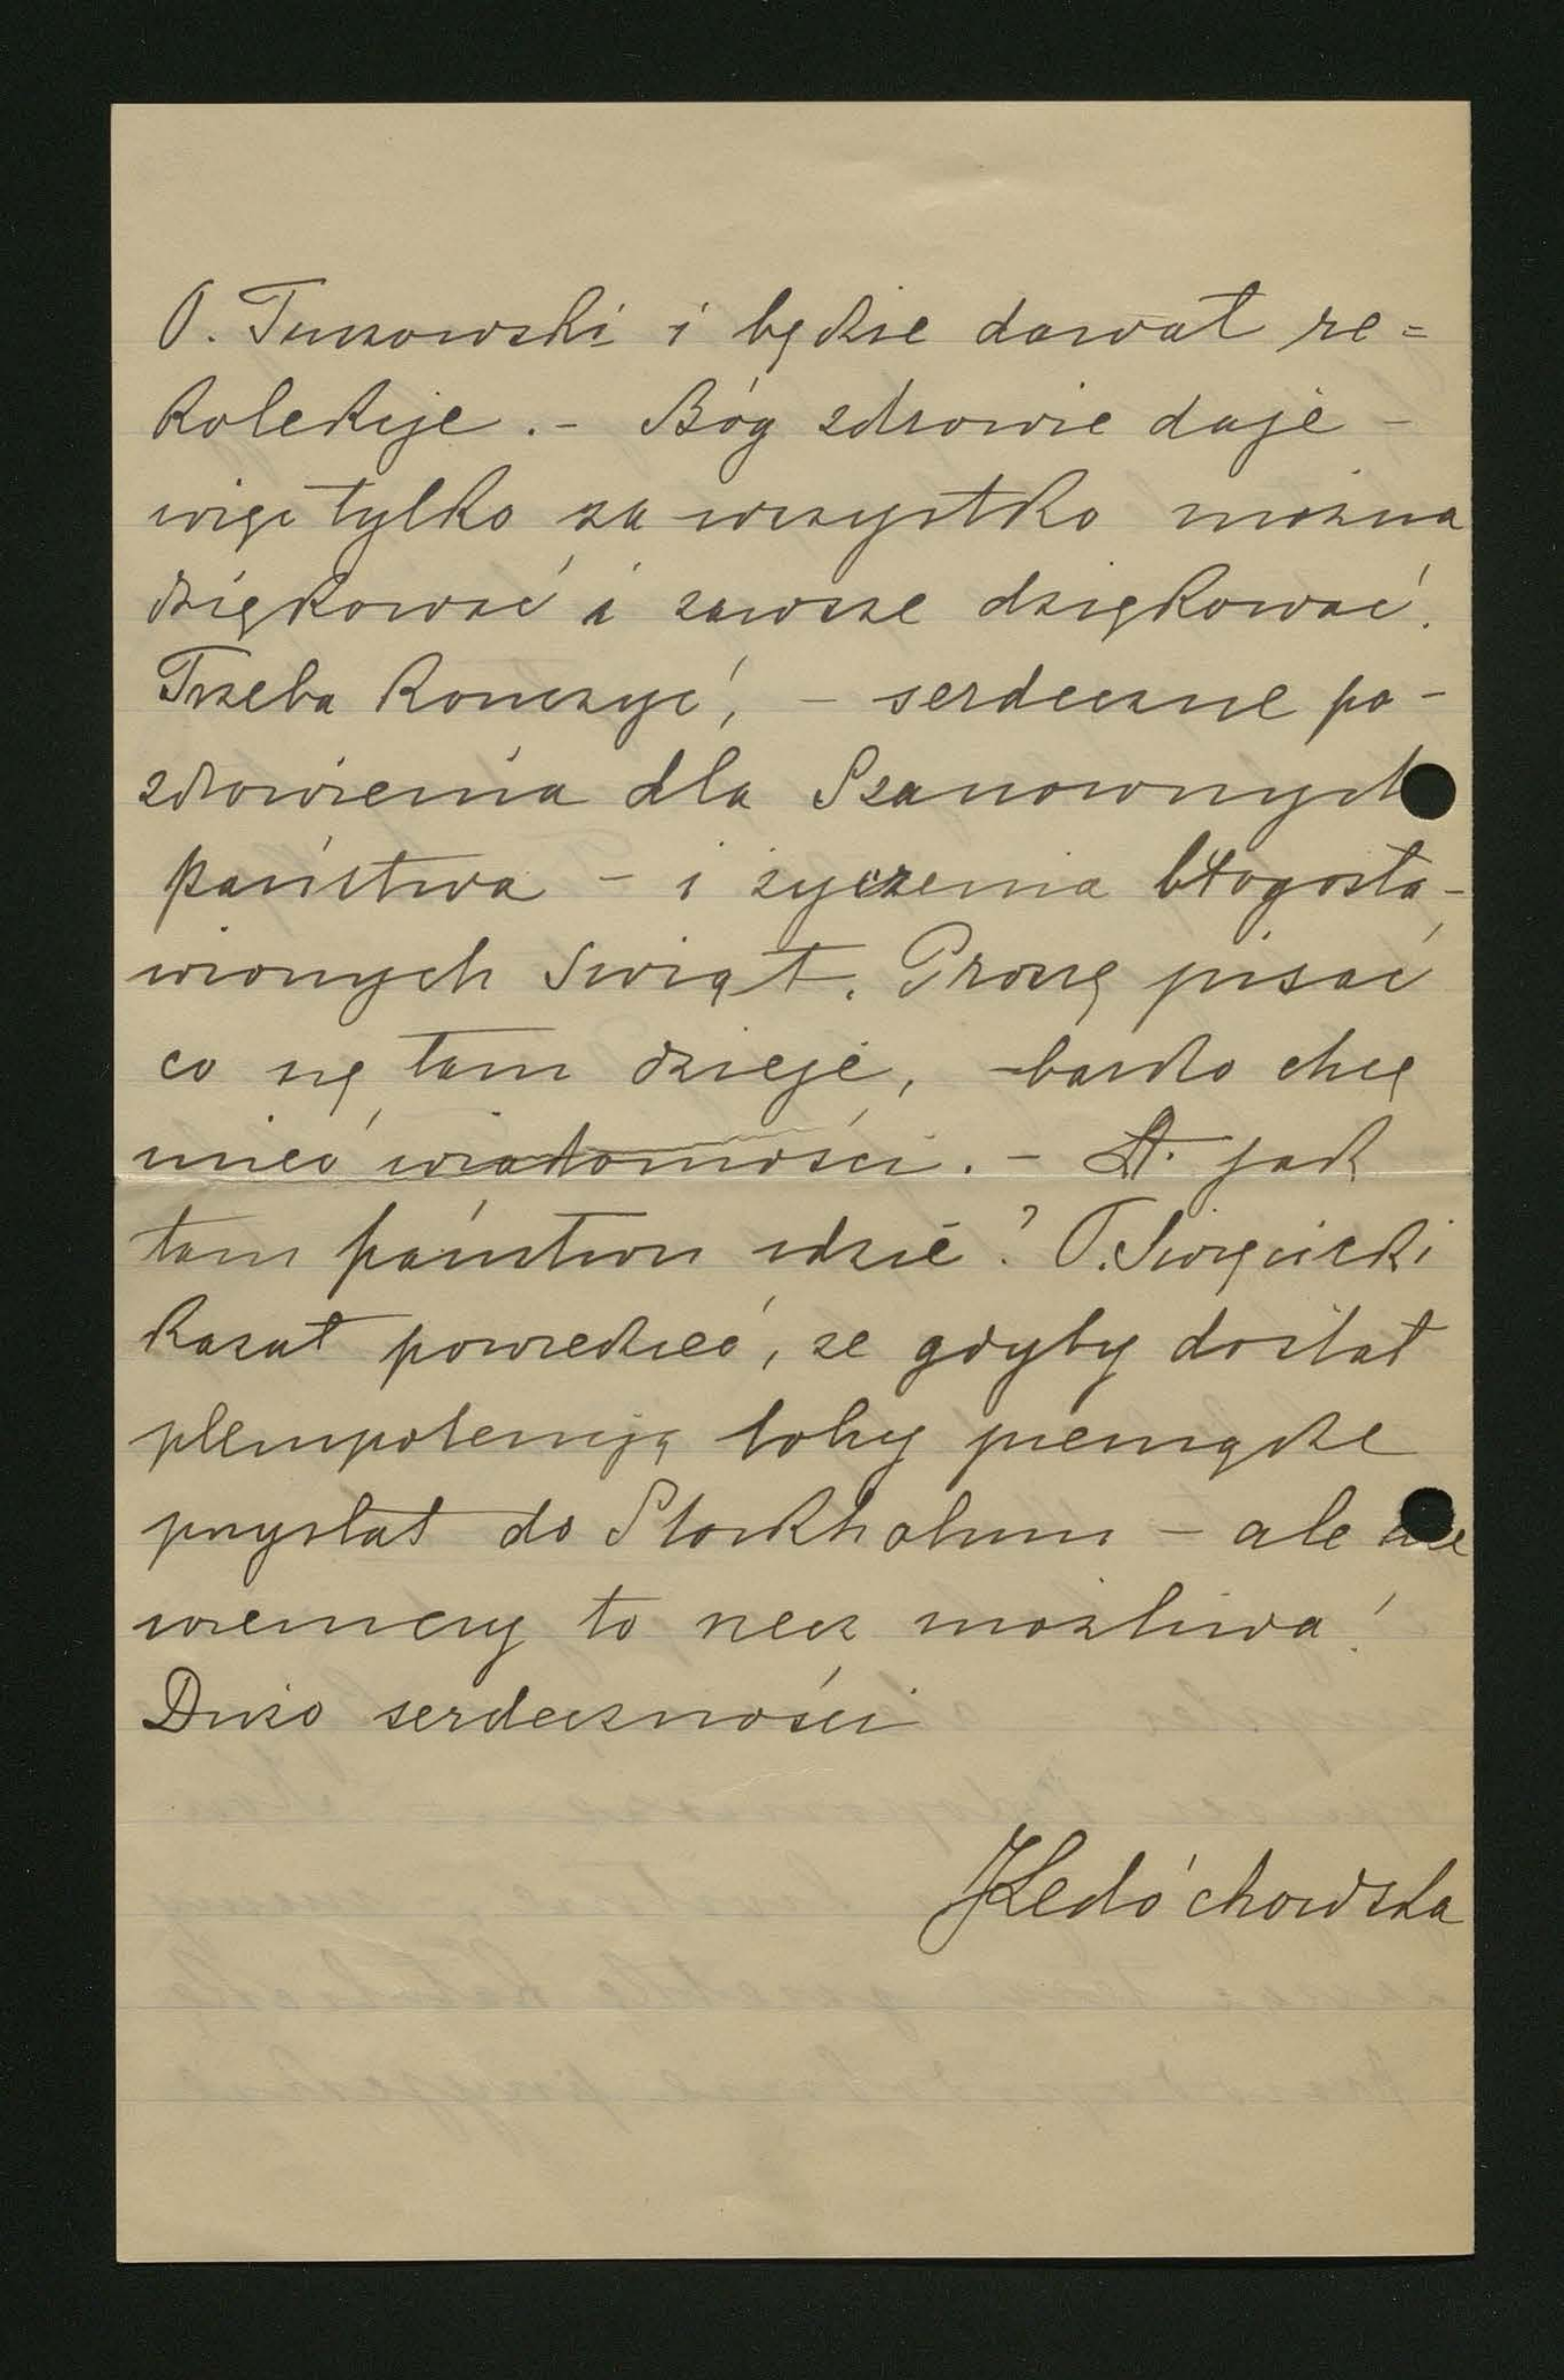 O. Turowski i będzie dawał re=
kolekcje. – Bóg zdrowie daje –
więc tylko za wszystko można
dziękować i zawsze dziękować.
Trzeba kończyć, – serdeczne po-
zdrowienia dla Szanownych
państwa – i życzenia błogosła-
wionych Świąt. Proszę pisać
co się tam dzieje, – bardzo chcę
mieć wiadomości. – A jak
tam państwu idzie? O. Święcicki
kazał powiedzieć, że gdyby dostał
plenipotencją toby pieniądze
przysłał do Stockholmu – ale nie
wiemczy to rzecz możliwa!
Dużo serdeczności
Ledóchowska